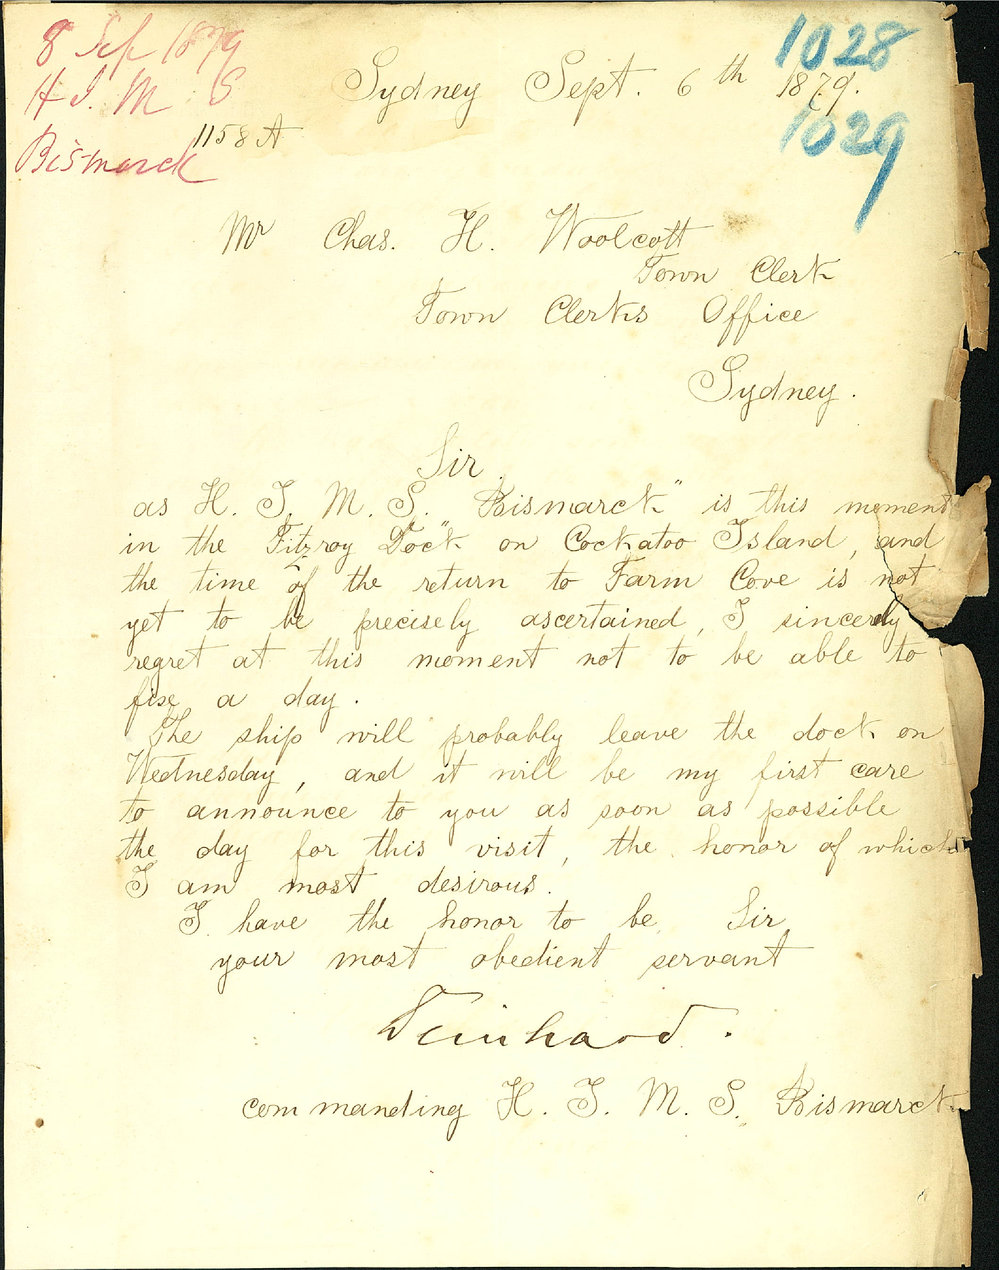 8 Sep 1879
H I. M. S
Bismarck
1158 A
1028
1029
Sydney Sept. 6th 1879.
Mr Chas. H. Woolcott
Town Clerk
Town Clerks Office
Sydney.
Sir
as H. I. M. S. "Bismarck" is this moment
in the Fitzroy Dock on Cockatoo Island, and
the time of the return to Farm Cove is not
yet to be precisely ascertained, I sincerely
regret at this moment not to be able to
fix a day.
The ship will probably leave the dock on
Wednesday, and it will be my first care
to announce to you as soon as possible
the day for this visit, the honor of which
I am most desirous.
I have the honor to be Sir
your most obedient servant
Deinhard.
commanding H. I. M. S. Bismarck